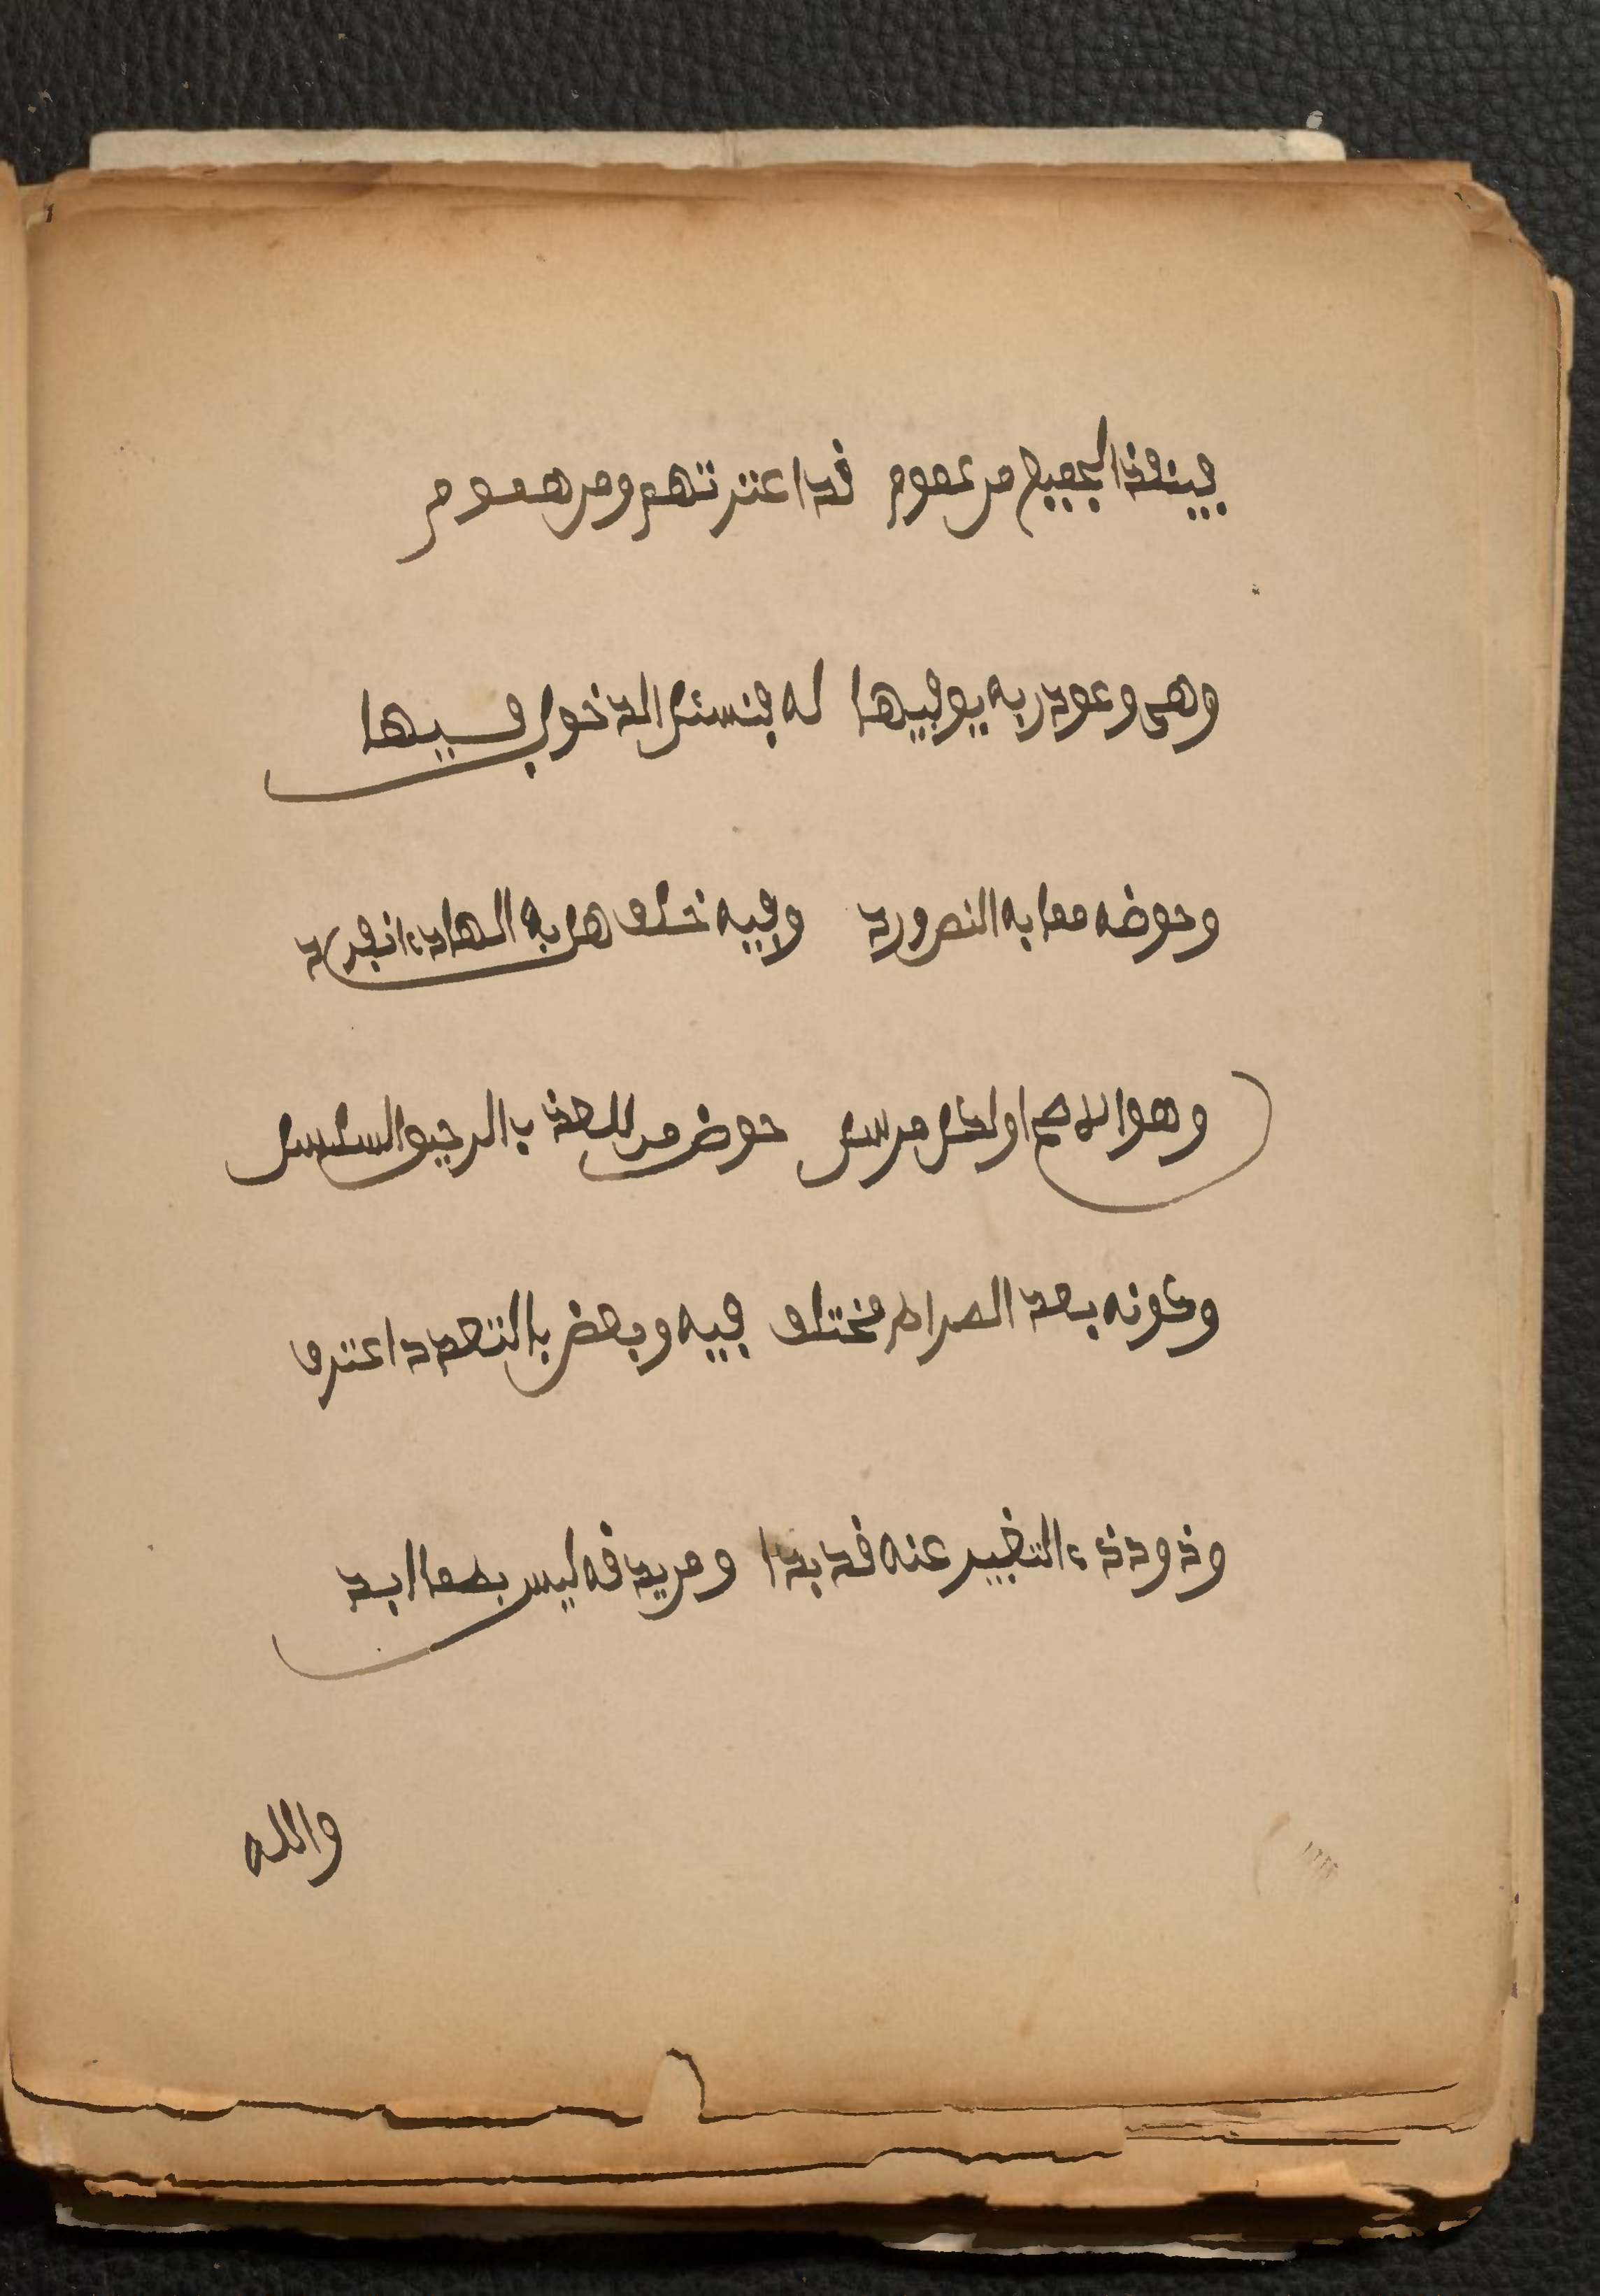 فينقذ الجميع من غموم قد اعترتهم ومن هموم
وهى وعود ربه يوفيها له فنسئل الدخول فيها
وحوضه مما به النص ورد وفيه خلف هل به الهادى انفرد
وهو الاصح او لكل مرسل حوض من العذب الرحيق السلسل
وكونه بعد الصراط مختلف فيه وبعض بالتعدد اعترف
وذود ذى التغيير عنه قد بدا ومن يذقه ليس يظما ابدا
والله